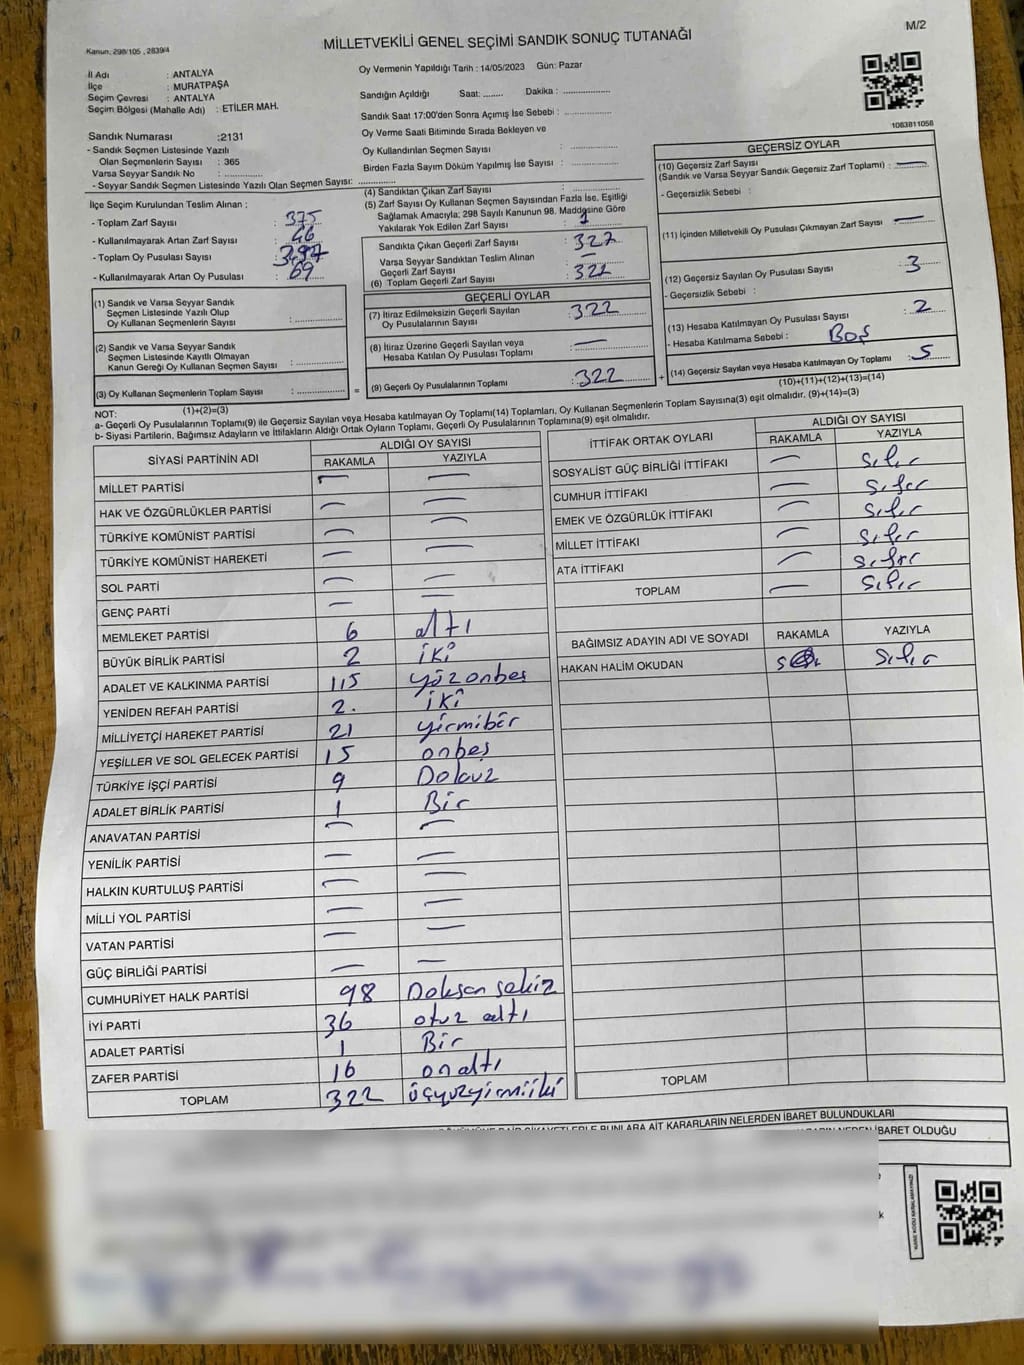 Kanun, 298/105 , 2839/4
MİLLETVEKİLİ GENEL SEÇİMİ SANDIK SONUÇ TUTANAĞI
M/2
İl Adı : ANTALYA
İlçe : MURATPAŞA
Seçim Çevresi : ANTALYA
Seçim Bölgesi (Mahalle Adı) : ETİLER MAH.
Sandık Numarası :2131
- Sandık Seçmen Listesinde Yazılı
Olan Seçmenlerin Sayısı : 365
Varsa Seyyar Sandık No : ..............
- Seyyar Sandık Seçmen Listesinde Yazılı Olan Seçmen Sayısı: ..............
Oy Vermenin Yapıldığı Tarih : 14/05/2023 Gün: Pazar
Sandığın Açıldığı Saat: ........ Dakika : ..............
Sandık Saat 17:00'den Sonra Açımış İse Sebebi : ..............
Oy Verme Saati Bitiminde Sırada Bekleyen ve
Oy Kullandırılan Seçmen Sayısı : ..............
Birden Fazla Sayım Döküm Yapılmış İse Sayısı : ..............
1083811056
İlçe Seçim Kurulundan Teslim Alınan ;
- Toplam Zarf Sayısı : 375
- Kullanılmayarak Artan Zarf Sayısı : 46
- Toplam Oy Pusulası Sayısı :
- Kullanılmayarak Artan Oy Pusulası : 69
(1) Sandık ve Varsa Seyyar Sandık
Seçmen Listesinde Yazılı Olup
Oy Kullanan Seçmenlerin Sayısı : ..............
(2) Sandık ve Varsa Seyyar Sandık
Seçmen Listesinde Kayıtlı Olmayan
Kanun Gereği Oy Kullanan Seçmen Sayısı : ..............
(3) Oy Kullanan Seçmenlerin Toplam Sayısı : ..............
(1)+(2)=(3)
(4) Sandıktan Çıkan Zarf Sayısı : ..............
(5) Zarf Sayısı Oy Kullanan Seçmen Sayısından Fazla İse, Eşitliği
Sağlamak Amacıyla; 298 Sayılı Kanunun 98. Maddesine Göre
Yakılarak Yok Edilen Zarf Sayısı : 1
Sandıkta Çıkan Geçerli Zarf Sayısı : 327
Varsa Seyyar Sandıktan Teslim Alınan
Geçerli Zarf Sayısı : —
(6) Toplam Geçerli Zarf Sayısı :
GEÇERLİ OYLAR
(7) İtiraz Edilmeksizin Geçerli Sayılan
Oy Pusulalarının Sayısı : 322
(8) İtiraz Üzerine Geçerli Sayılan veya
Hesaba Katılan Oy Pusulası Toplamı : —
= (9) Geçerli Oy Pusulalarının Toplamı : 322 +
GEÇERSİZ OYLAR
(10) Geçersiz Zarf Sayısı
(Sandık ve Varsa Seyyar Sandık Geçersiz Zarf Toplamı) : —
- Geçersizlik Sebebi :
(11) İçinden Milletvekili Oy Pusulası Çıkmayan Zarf Sayısı —
(12) Geçersiz Sayılan Oy Pusulası Sayısı : 3
- Geçersizlik Sebebi :
(13) Hesaba Katılmayan Oy Pusulası Sayısı : 2
- Hesaba Katılmama Sebebi : Boş
(14) Geçersiz Sayılan veya Hesaba Katılmayan Oy Toplamı : 5
(10)+(11)+(12)+(13)=(14)
NOT:
a- Geçerli Oy Pusulalarının Toplamı(9) ile Geçersiz Sayılan veya Hesaba katılmayan Oy Toplamı(14) Toplamları, Oy Kullanan Seçmenlerin Toplam Sayısına(3) eşit olmalıdır. (9)+(14)=(3)
b- Siyasi Partilerin, Bağımsız Adayların ve İttifakların Aldığı Ortak Oyların Toplamı, Geçerli Oy Pusulalarının Toplamına(9) eşit olmalıdır.
SİYASİ PARTİNİN ADI ALDIĞI OY SAYISI
RAKAMLA YAZIYLA
MİLLET PARTİSİ — —
HAK VE ÖZGÜRLÜKLER PARTİSİ — —
TÜRKİYE KOMÜNİST PARTİSİ — —
TÜRKİYE KOMÜNİST HAREKETİ — —
SOL PARTİ — —
GENÇ PARTİ — —
MEMLEKET PARTİSİ 6 altı
BÜYÜK BİRLİK PARTİSİ 2 iki
ADALET VE KALKINMA PARTİSİ 115 yüzonbeş
YENİDEN REFAH PARTİSİ 2. iki
MİLLİYETÇİ HAREKET PARTİSİ 21 yirmibir
YEŞİLLER VE SOL GELECEK PARTİSİ 15 onbeş
TÜRKİYE İŞÇİ PARTİSİ 9 Dokuz
ADALET BİRLİK PARTİSİ 1 Bir
ANAVATAN PARTİSİ — —
YENİLİK PARTİSİ — —
HALKIN KURTULUŞ PARTİSİ — —
MİLLİ YOL PARTİSİ — —
VATAN PARTİSİ — —
GÜÇ BİRLİĞİ PARTİSİ — —
CUMHURİYET HALK PARTİSİ 98 Doksan sekiz
İYİ PARTİ 36 otuz altı
ADALET PARTİSİ 1 Bir
ZAFER PARTİSİ 16 onaltı
TOPLAM 322 üçyüzyirmiiki
İTTİFAK ORTAK OYLARI ALDIĞI OY SAYISI
RAKAMLA YAZIYLA
SOSYALİST GÜÇ BİRLİĞİ İTTİFAKI — Sıfır
CUMHUR İTTİFAKI — Sıfır
EMEK VE ÖZGÜRLÜK İTTİFAKI — Sıfır
MİLLET İTTİFAKI — Sıfır
ATA İTTİFAKI — Sıfır
TOPLAM — Sıfır
BAĞIMSIZ ADAYIN ADI VE SOYADI RAKAMLA YAZIYLA
HAKAN HALİM OKUDAN Sıfır
TOPLAM
BUNLARA AİT KARARLARIN NELERDEN İBARET BULUNDUKLARI
İBARET OLDUĞU